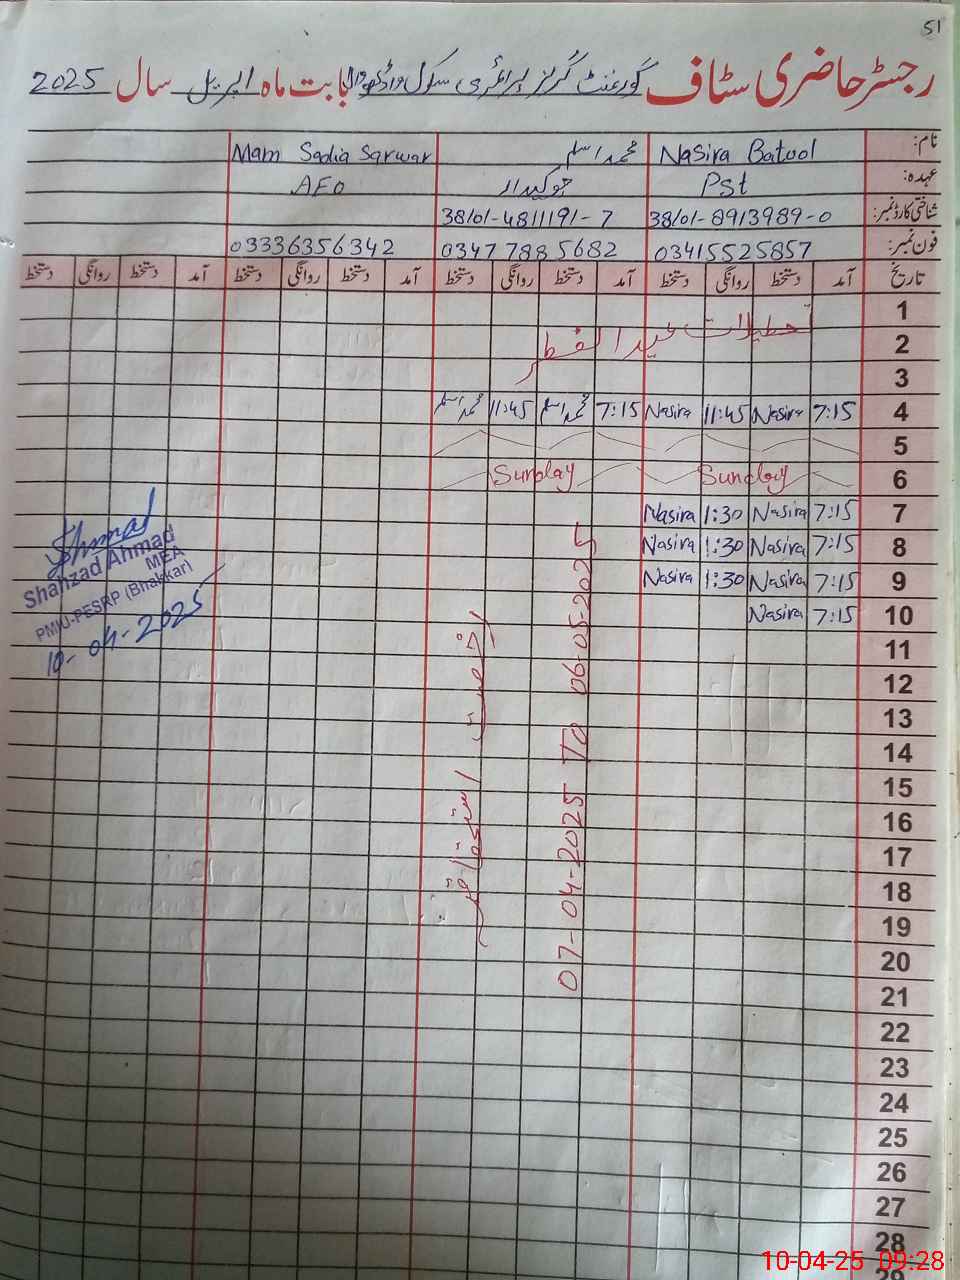 51
رجسٹر حاضری سٹاف گورنمنٹ گرلز پرائمری سکول بابت ماہ اپریل سال 2025
نام: Nasira Batool محمد اسلم Mam Sadia Sarwar
عہدہ: PST چوکیدار AEO
شناختی کارڈ نمبر: 38101-8913989-0 38101-4811191-7
فون نمبر: 03415525857 03477885682 03336356342
تاریخ آمد دستخط روانگی دستخط آمد دستخط روانگی دستخط آمد دستخط روانگی دستخط آمد دستخط روانگی دستخط
1
تعطیلات عید الفطر
2
3
4 7:15 Nasira 11:45 Nasira 7:15 محمد اسلم 11:45 محمد اسلم
5
6 Sunday Sunday
7 7:15 Nasira 1:30 Nasira
8 7:15 Nasira 1:30 Nasira
9 7:15 Nasira 1:30 Nasira
10 7:15 Nasira
11
12
13
14
15
16
17
18
19
20
21
22
23
24
25
26
27
28
29
رخصت استحقاقیہ
07-04-2025 To 06-05-2025
Shahzad Ahmad
MEA
PMIU-PESRP (Bhakkar)
10-04-2025
10-04-25 09:28